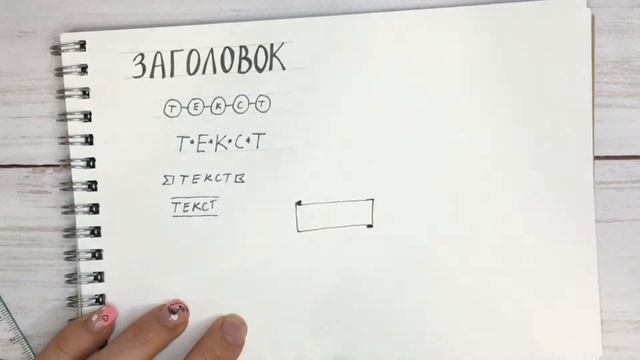 ЗАГОЛОВОК
ТЕКСТ
Т•Е•К•С•Т
ТЕКСТ
ТЕКСТ